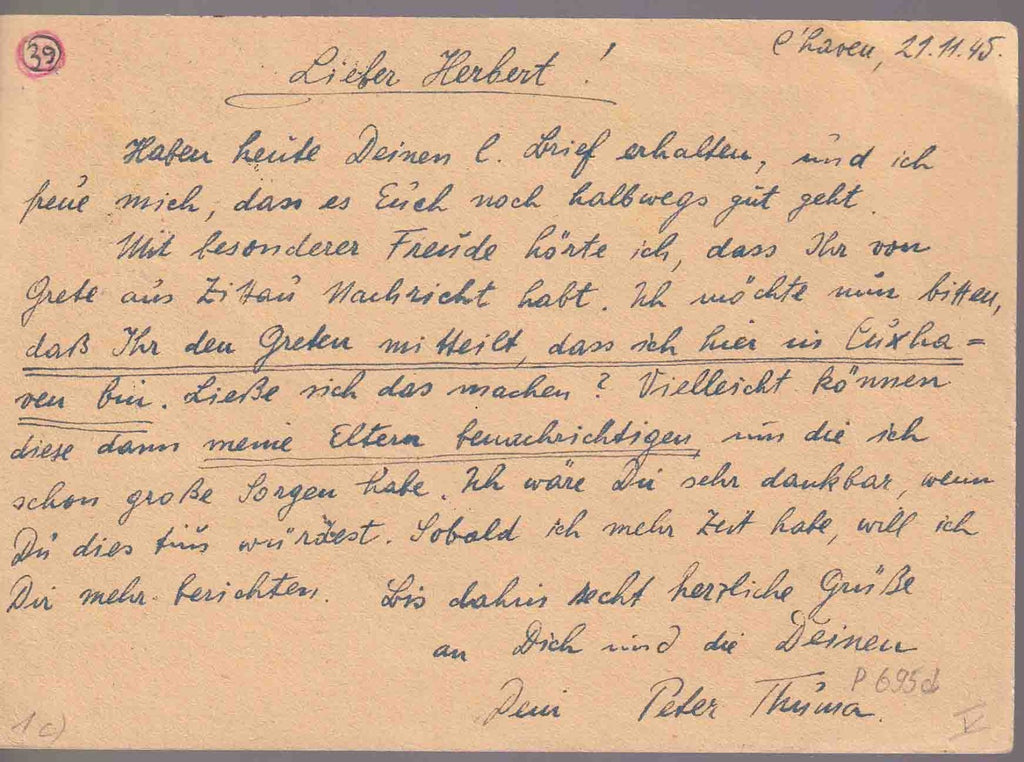 39
C'haven, 21.11.45.
Lieber Herbert!
Haben heute Deinen l. Brief erhalten, und ich
freue mich, dass es Euch noch halbwegs gut geht.
Mit besonderer Freude hörte ich, dass Ihr von
Grete aus Zittau Nachricht habt. Ich möchte nun bitten,
daß Ihr den Greten mitteilt, dass ich hier in Cuxha=
ven bin. Ließe sich das machen? Vielleicht können
diese dann meine Eltern benachrichtigen um die ich
schon große Sorgen habe. Ich wäre Dir sehr dankbar, wenn
Du dies tun würdest. Sobald ich mehr Zeit habe, will ich
Dir mehr berichten. Bis dahin recht herzliche Grüße
an Dich und die Deinen
Dein Peter Thuma.
P 695d
1c)
V